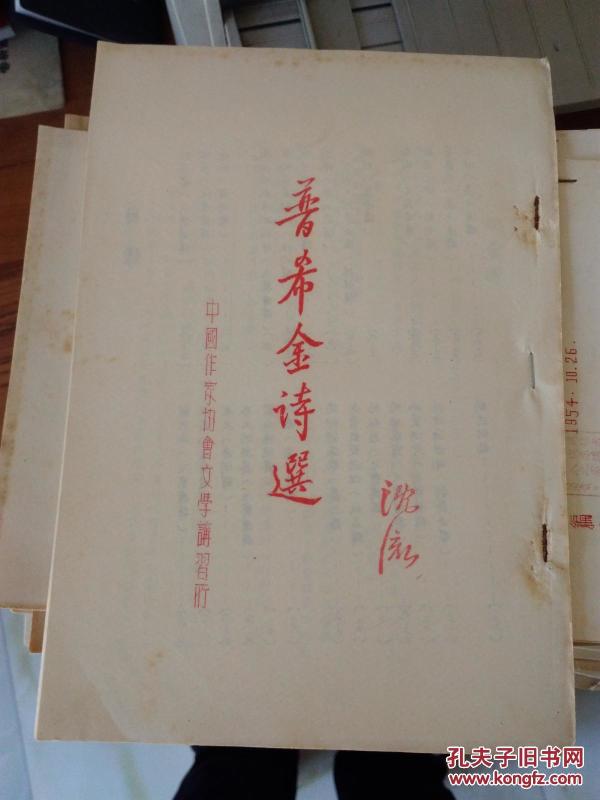 普希金诗選
中國作家协會文学講習所
沈流
1954.10.26.
孔夫子旧书网
www.kongfz.com